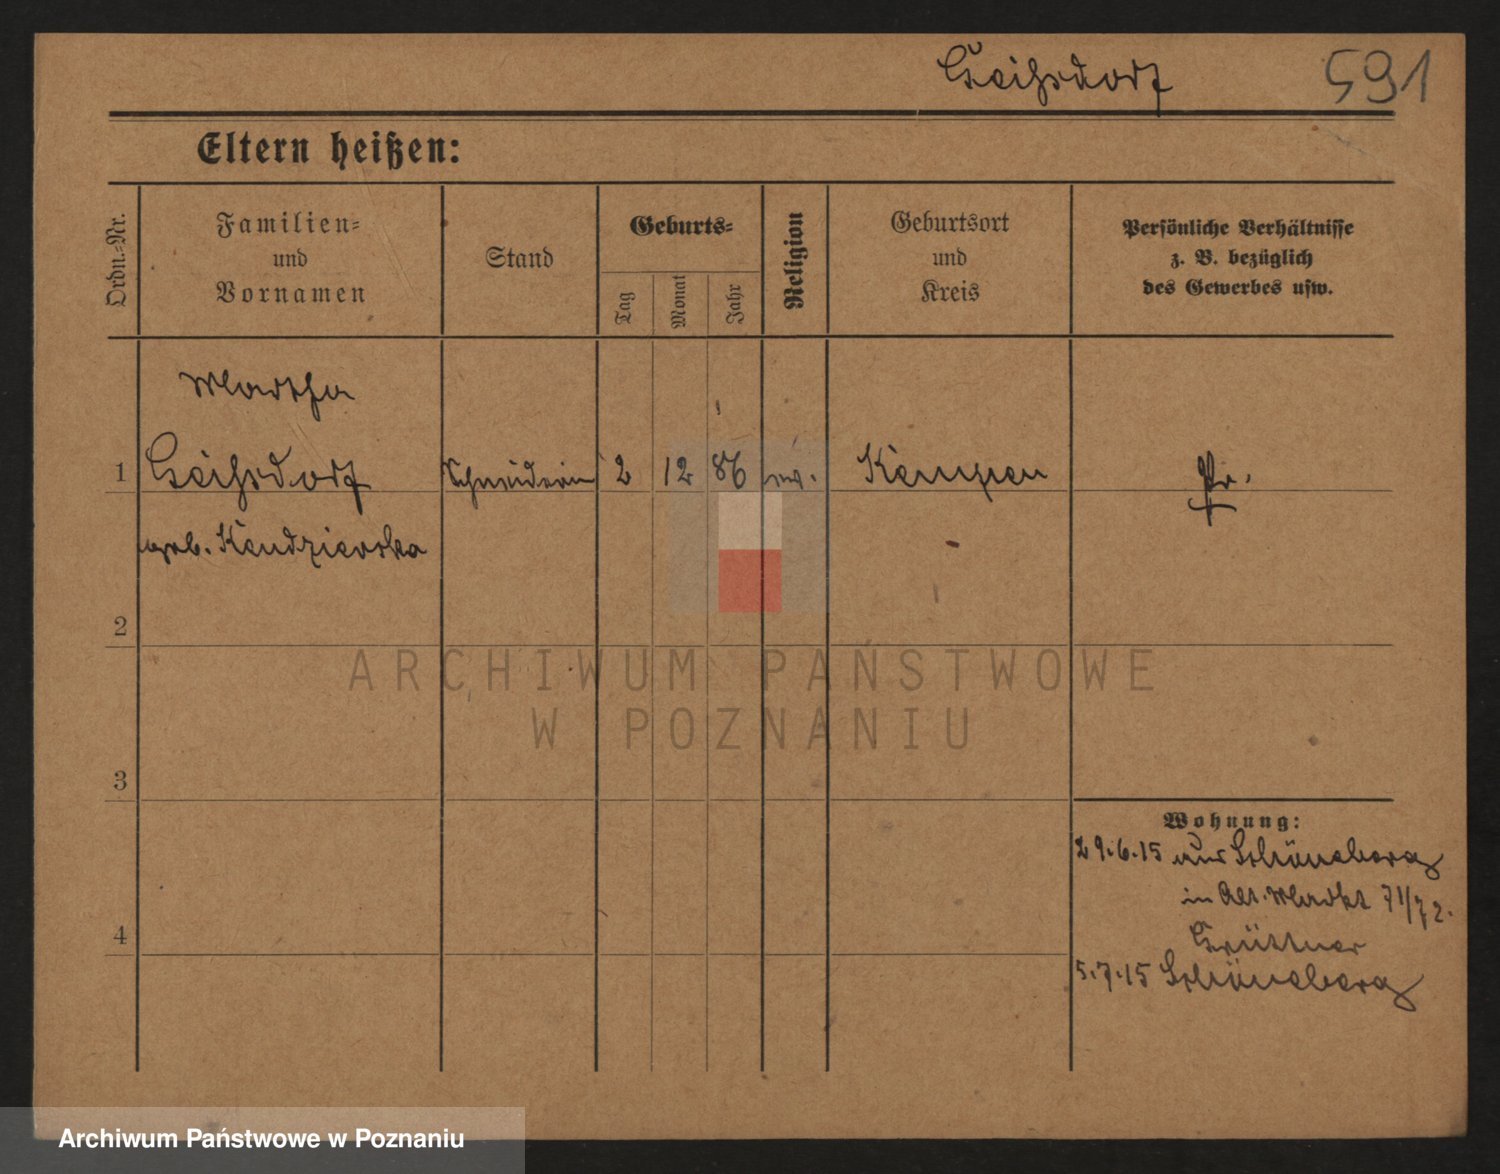 Geihsdorf 591
Eltern heißen:
Ordn.-Nr.
Familien-
und
Vornamen
Stand
Geburts-
Tag
Monat
Jahr
Religion
Geburtsort
und
Kreis
Persönliche Verhältnisse
z. B. bezüglich
des Gewerbes usw.
Martha
1 Geihsdorf Schneiderin 2 12 86 ev. Kempen Pr.
geb. Kendzierska
2
3
4
Wohnung:
29.6.15 aus Schöneberg
in Alt. Markt 71/72.
Grüttner
5.7.15 Schöneberg
ARCHIWUM PAŃSTWOWE
W POZNANIU
Archiwum Państwowe w Poznaniu